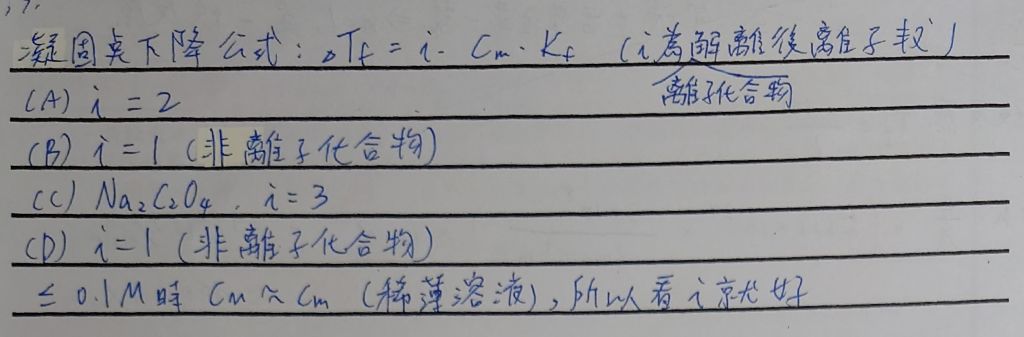 凝固點下降公式：ΔTf = i · Cm · Kf （i為解離後離子數）
離子化合物
(A) i = 2
(B) i = 1 (非離子化合物)
(C) Na₂C₂O₄ , i = 3
(D) i = 1 (非離子化合物)
≤ 0.1M時 CM ≈ Cm (稀薄溶液)，所以看i就好